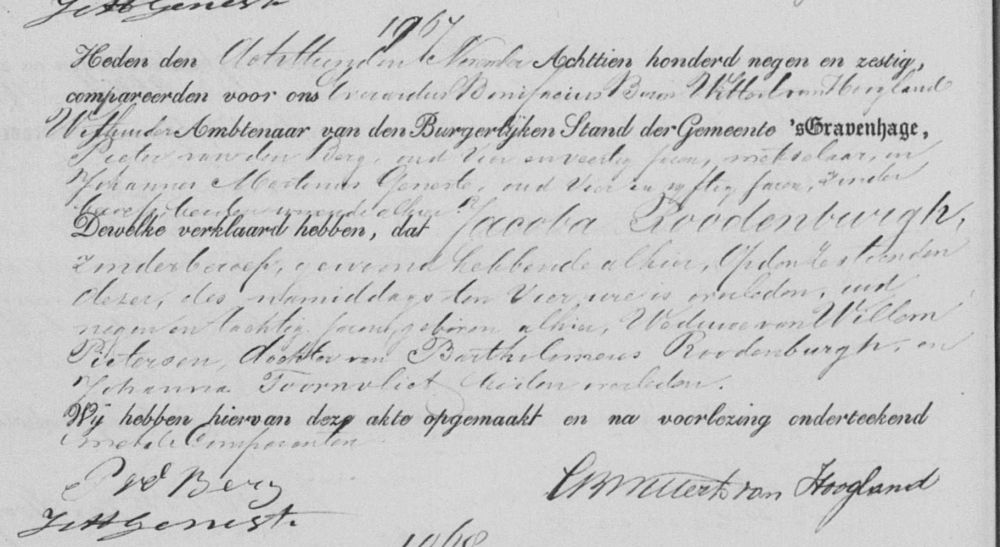 JMGenest.
1967
Heden den Achttienden November Achttien honderd negen en zestig,
compareerden voor ons Everardus Bonifacius Baron Wittert van Hoogland
Wethouder Ambtenaar van den Burgerlyken Stand der Gemeente 's Gravenhage,
Pieter van den Berg, oud vier en veertig jaren, metselaar, en
Johannes Martinus Geneste, oud vier en vyftig jaren, zonder
beroep, beiden wonende alhier.
Dewelke verklaard hebben, dat Jacoba Roodenburgh,
zonder beroep, gewoond hebbende alhier, Op den Zestienden
dezer, des namiddags ten vier ure is overleden, oud
negen en tachtig jaren, geboren alhier, Weduwe van Willem
Pietersen, dochter van Bartholomeus Roodenburgh, en
Johanna Toornvliet beiden overleden.
Wy hebben hiervan deze akte opgemaakt en na voorlezing onderteekend
met de Comparanten.
P vd Berg
EBWittert van Hoogland
JMGenest.
1968